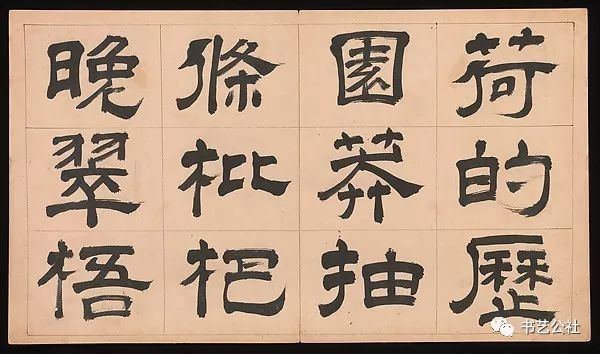 荷的歷
園莽抽
條枇杷
晚翠梧
书艺公社